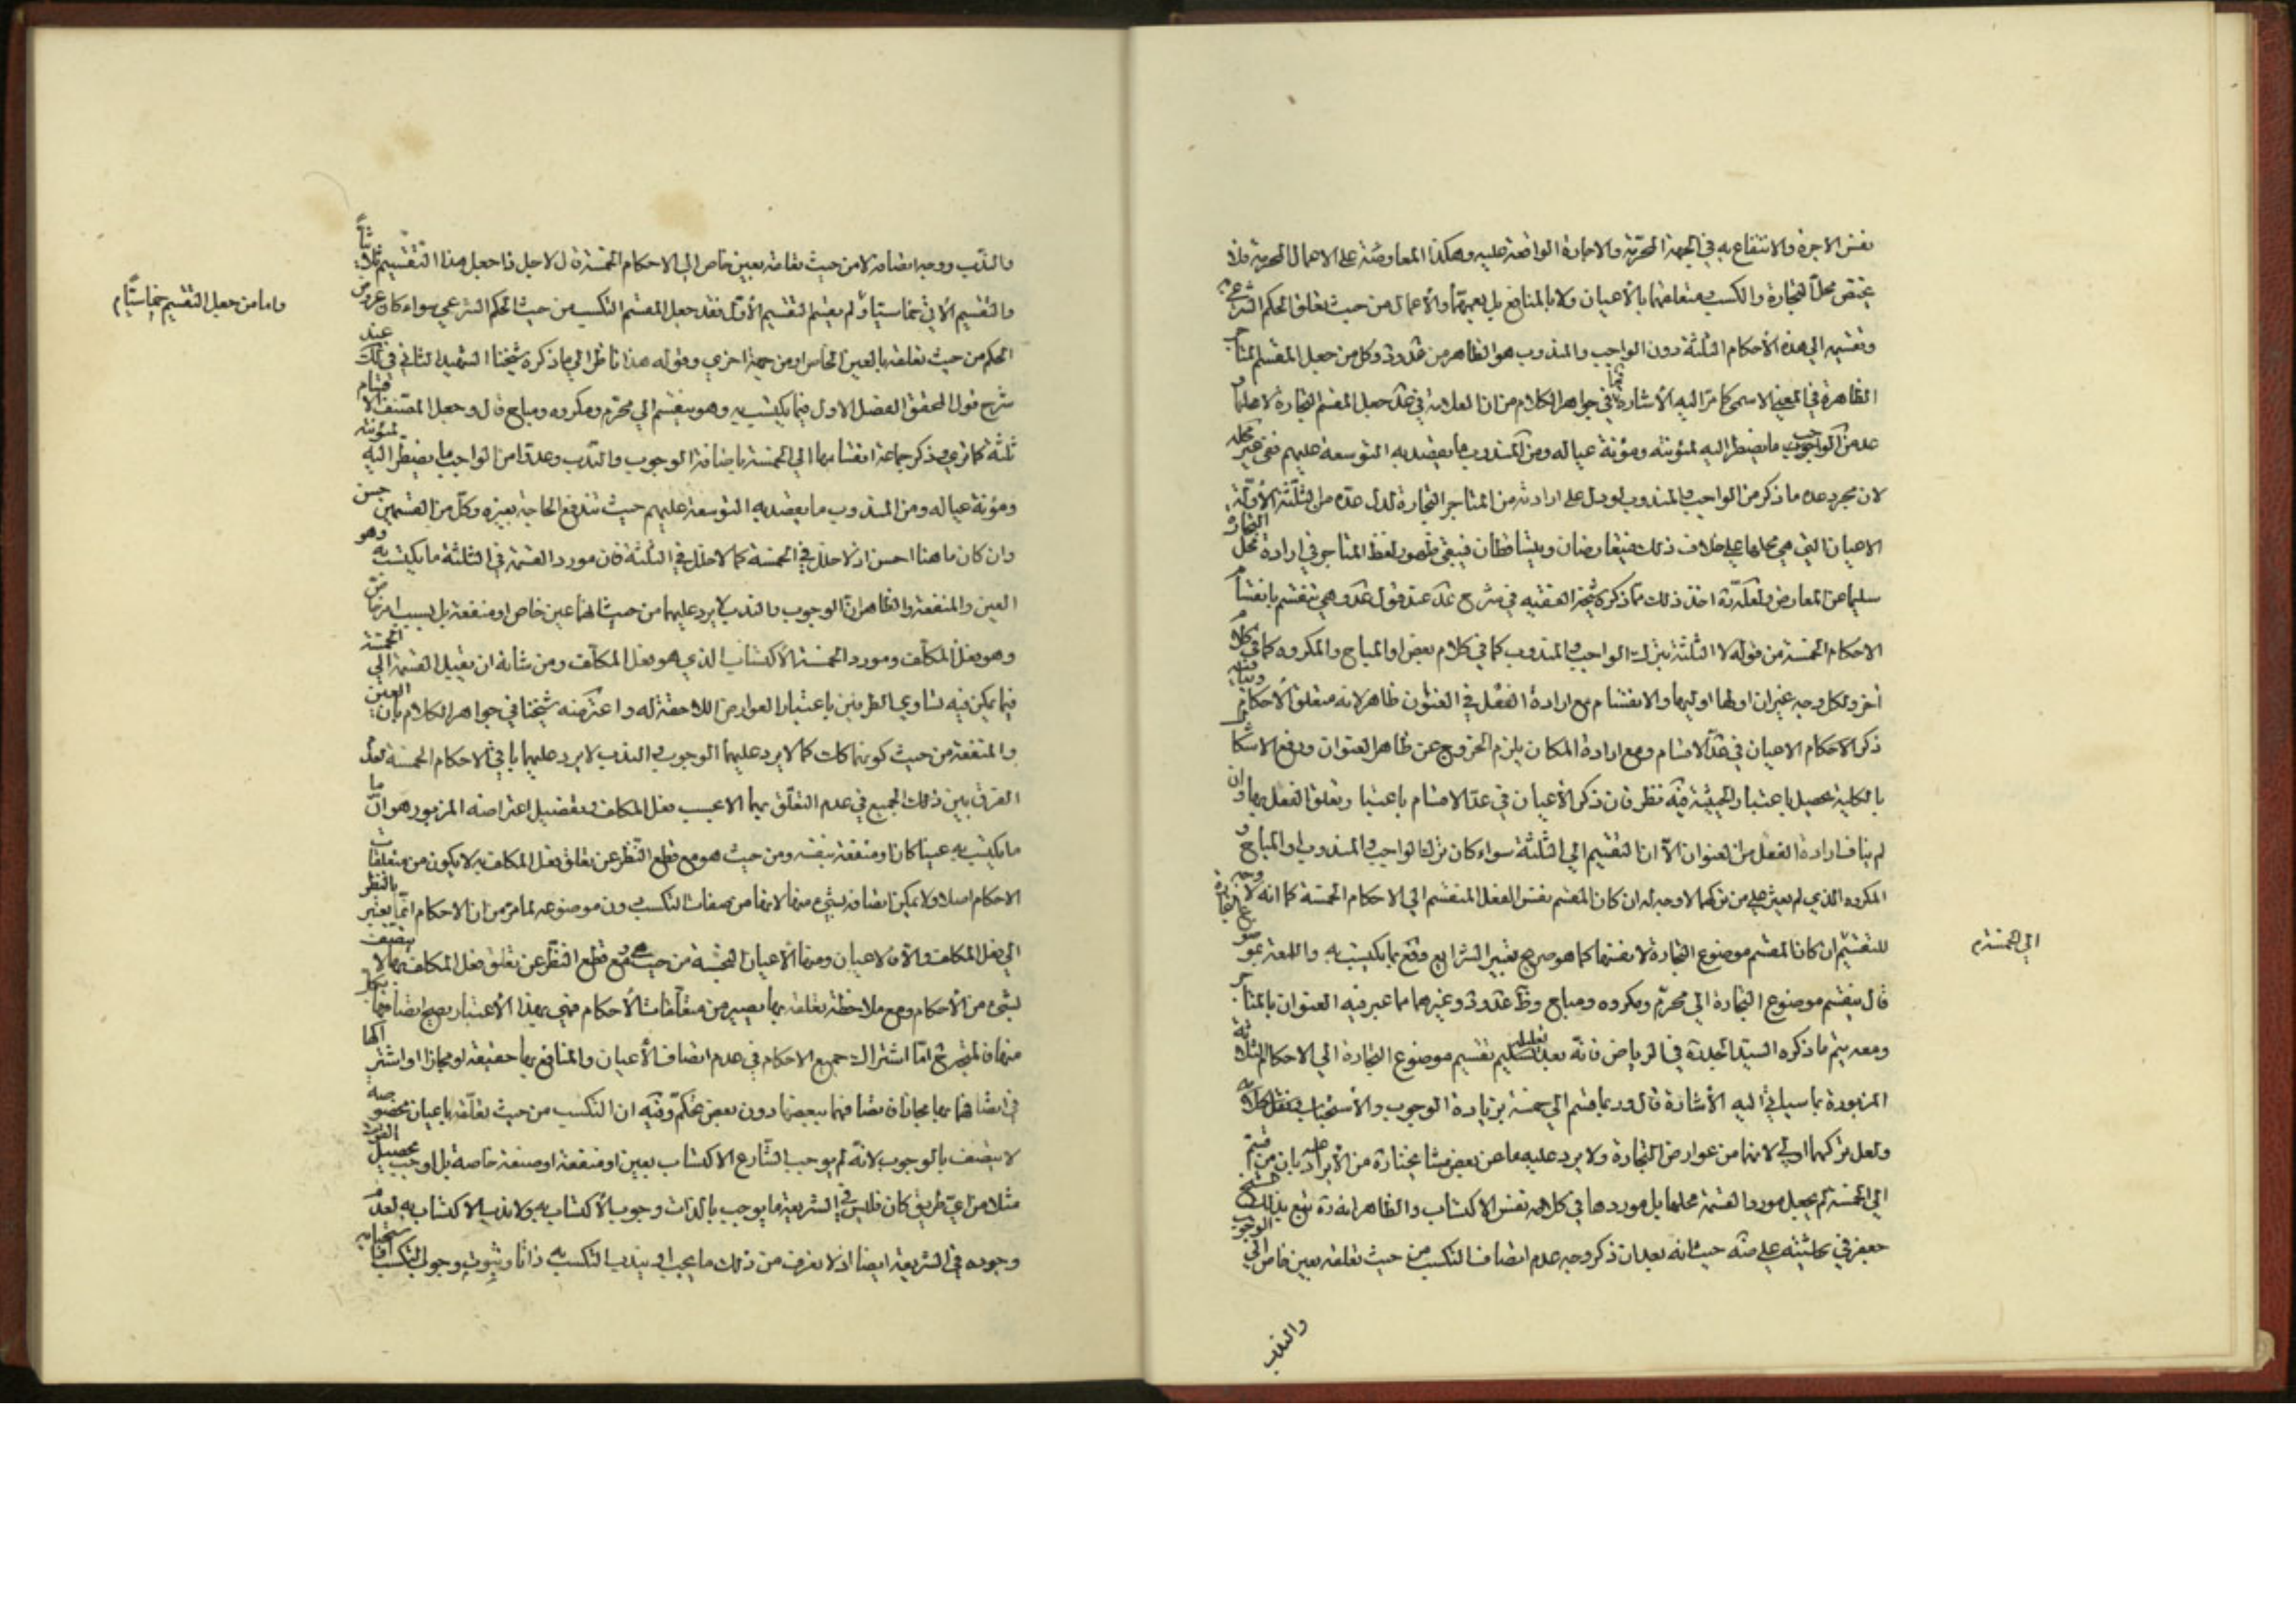 نفس الاجرة والانتفاع به في الجهة المحرمة والاجارة الواقعة عليه وهكذا المعاوضة على الاعمال المحرمة فلا
يختص محل التجارة والكسب ومتعلقهما بالأعيان ولا بالمنافع بل يعمهما والأعمال من حيث تعلق الحكم الشرعي
وتقسيمه الى هذه الأحكام الثلثة دون الواجب والمندوب هو الظاهر من عد وكل من جعل المقسم المتاجر
الظاهرة في المعنى الاسمي كما مر اليه الأشارة فما في جواهر الكلام من ان العلامة في عد جعل المقسم التجارة لا محلها و
عد من الواجب ما يضطر اليه لمؤنته ومؤنة عياله ومن المندوب ما يقصد به التوسعة عليهم ففي غير محله
لان مجرد عده ما ذكر من الواجب والمندوب لو دل على ارادته من المتاجر التجارة لدل عده من الثلثة الأولة
الاعيان التي هي محلها على خلاف ذلك فيتعارضان ويتساقطان فيبقى ظهور لفظ المتاجر في ارادة محل التجارة
سليما عن المعارض ولعله ره اخذ ذلك مما ذكره شيخه الفقيه في شرح عد عند قول عد وهي تنقسم بانقسام
الاحكام الخمسة من قوله لا الثلثة بترك الواجب والمندوب كما في كلام بعض او المباح والمكروه كما في كلام
أخر ولكل وجه غير ان اولها اوليها والانقسام مع ارادة الفعل في العنوان ظاهر لانه متعلق الأحكام
ذكر الاحكام الاعيان في عد الاقسام ومع ارادة المكان يلزم الخروج عن ظاهر العنوان ورفع الاشكال
بالكلية يحصل باعتبار الحيثية وفيه نظر فان ذكر الأعيان في عد الاقسام باعتبار وتعلق الفعل بها وان
لم يناف ارادة الفعل من العنوان الا ان التقسيم الى الثلثة سواء كان بترك الواجب والمندوب او المباح و
المكروه الذي لم يعثر على من تركهما لا وجه له ان كان المقسم نفس الفعل المنقسم الى الاحكام الخمسة كما انه لا وجه
للتقسيم ان كان المقسم موضوع التجارة لا نفسها كما هو صريح تعبير الشرايع وقع بما يكتسب به واللمعة بموضوع
الى الخمسة م
قال ينقسم موضوع التجارة الى محرم ومكروه ومباح وظ عد وغيرهما مما عبر فيه العنوان بالمتاجر
ومعه يتم ما ذكره السيد الجد ره في الرياض فانه بعد تعليل تقسيم موضوع التجارة الى الاحكام الثلاثة
المزبورة بما سيأتي اليه الأشارة قال وربما يقسم الى خمسة بزيادة الوجوب والأستحباب
ولعل تركهما اولى لانهما من عوارض التجارة ولا يرد عليه ما عن بعض مشايخنا ره من الأيراد عليه بان من قسم
الى الخمسة لم يجعل مورد القسمة محلها بل موردها في كلامه نفس الاكتساب والظاهر انه ره تبع بذلك الشيخ
جعفر في حاشيته على ضه حيث انه بعد ان ذكر وجه عدم اتصاف التكسب من حيث تعلقه بعين خاص الى الوجوب
والندب
والندب ووجه اتصافه لا من حيث تعلقه بعين خاص الى الاحكام الخمسة قال لاجل ذا جعل هذا التقسيم ثلاثيا
واما من جعل التقسيم خماسيا م
والتقسيم الأتي خماسيا ولم يقسم التقسيم الأول فقد جعل المقسم التكسب من حيث الحكم الشرعي سواء كان عروض
الحكم من حيث تعلقه بالعين الخاص او من جهة اخرى وقوله هذا ناظر الى ما ذكره شيخنا الشهيد الثاني في لك عند
شرح قول المحقق الفصل الاول فيما يكتسب به وهو ينقسم الى محرم ومكروه ومباح قال وجعل المصنف الاقسام
ثلثة كما ترى وذكر جماعة انقسامها الى الخمسة باضافة الوجوب والندب وعدوا من الواجب ما يضطر اليه لمؤنته
ومؤنة عياله ومن المندوب ما يقصد به التوسعة عليهم حيث تندفع الحاجة بغيره وكل من القسمين حسن
وان كان ما هنا احسن اذ لا خلل في الخمسة كما لا خلل في الثلثة فان مورد القسمة في الثلثة ما يكتسب به وهو
العين والمنفعة والظاهر ان الوجوب والندب لا يرد عليهما من حيث انها عين خاص او منفعة بل بسبب امر عارض
وهو فعل المكلف ومورد الخمسة الاكتساب الذي هو فعل المكلف ومن شأنه ان يقبل القسمة الى الخمسة
فيما يمكن فيه تساوى الطرفين باعتبار العوارض اللاحقة له واعترضه شيخنا في جواهر الكلام بان العين
والمنفعة من حيث كونها كانت كما لا يرد عليهما الوجوب والندب لا يرد عليهما باقي الاحكام الخمسة لعدم
الفرق بين ذلك الجميع في عدم التعلق بهما الا بحسب فعل المكلف وتفصيل اعتراضه المزبور هو ان ما
ما يكتسب به عينا كان او منفعة بنفسه ومن حيث هو مع قطع النظر عن تعلق فعل المكلف به لا يكون من متعلقات
الاحكام اصلا ولا يمكن اتصافه بشيء منها لانها من صفات التكسب دون موضوعه لما مر من ان الاحكام انما يعتبر بالنظر
الى فعل المكلف والا فالاعيان ومنها الأعيان النجسة من حيث هي ومع قطع النظر عن تعلق فعل المكلف بها لا يتصف
بشيء من الأحكام ومع ملاحظة تعلقه بها يصير من متعلقات الأحكام فهي بهذا الأعتبار يصح اتصافها بكل
منها فالمتجه ح اما اشتراك جميع الاحكام في عدم اتصاف الأعيان والمنافع بها حقيقة او مجازا او اشتراكها
في اتصافها بها مجازا فاتصافها ببعضها دون بعض تحكم وفيه ان التكسب من حيث تعلقه باعيان مخصوصه
لا يتصف بالوجوب لانه لم يوجب الشارع الاكتساب بعين او منفعة او صنعة خاصة بل اوجب تحصيل القوت
مثلا من اي طريق كان فليس في الشريعة ما يوجب بالذات وجوب الأكتساب به ولا ندب الاكتساب به لعدم
وجوده في الشريعة ايضا اذ لا نعرف من ذلك ما يجب او يندب التكسب به ذاتا وثبوت وجوب التكسب